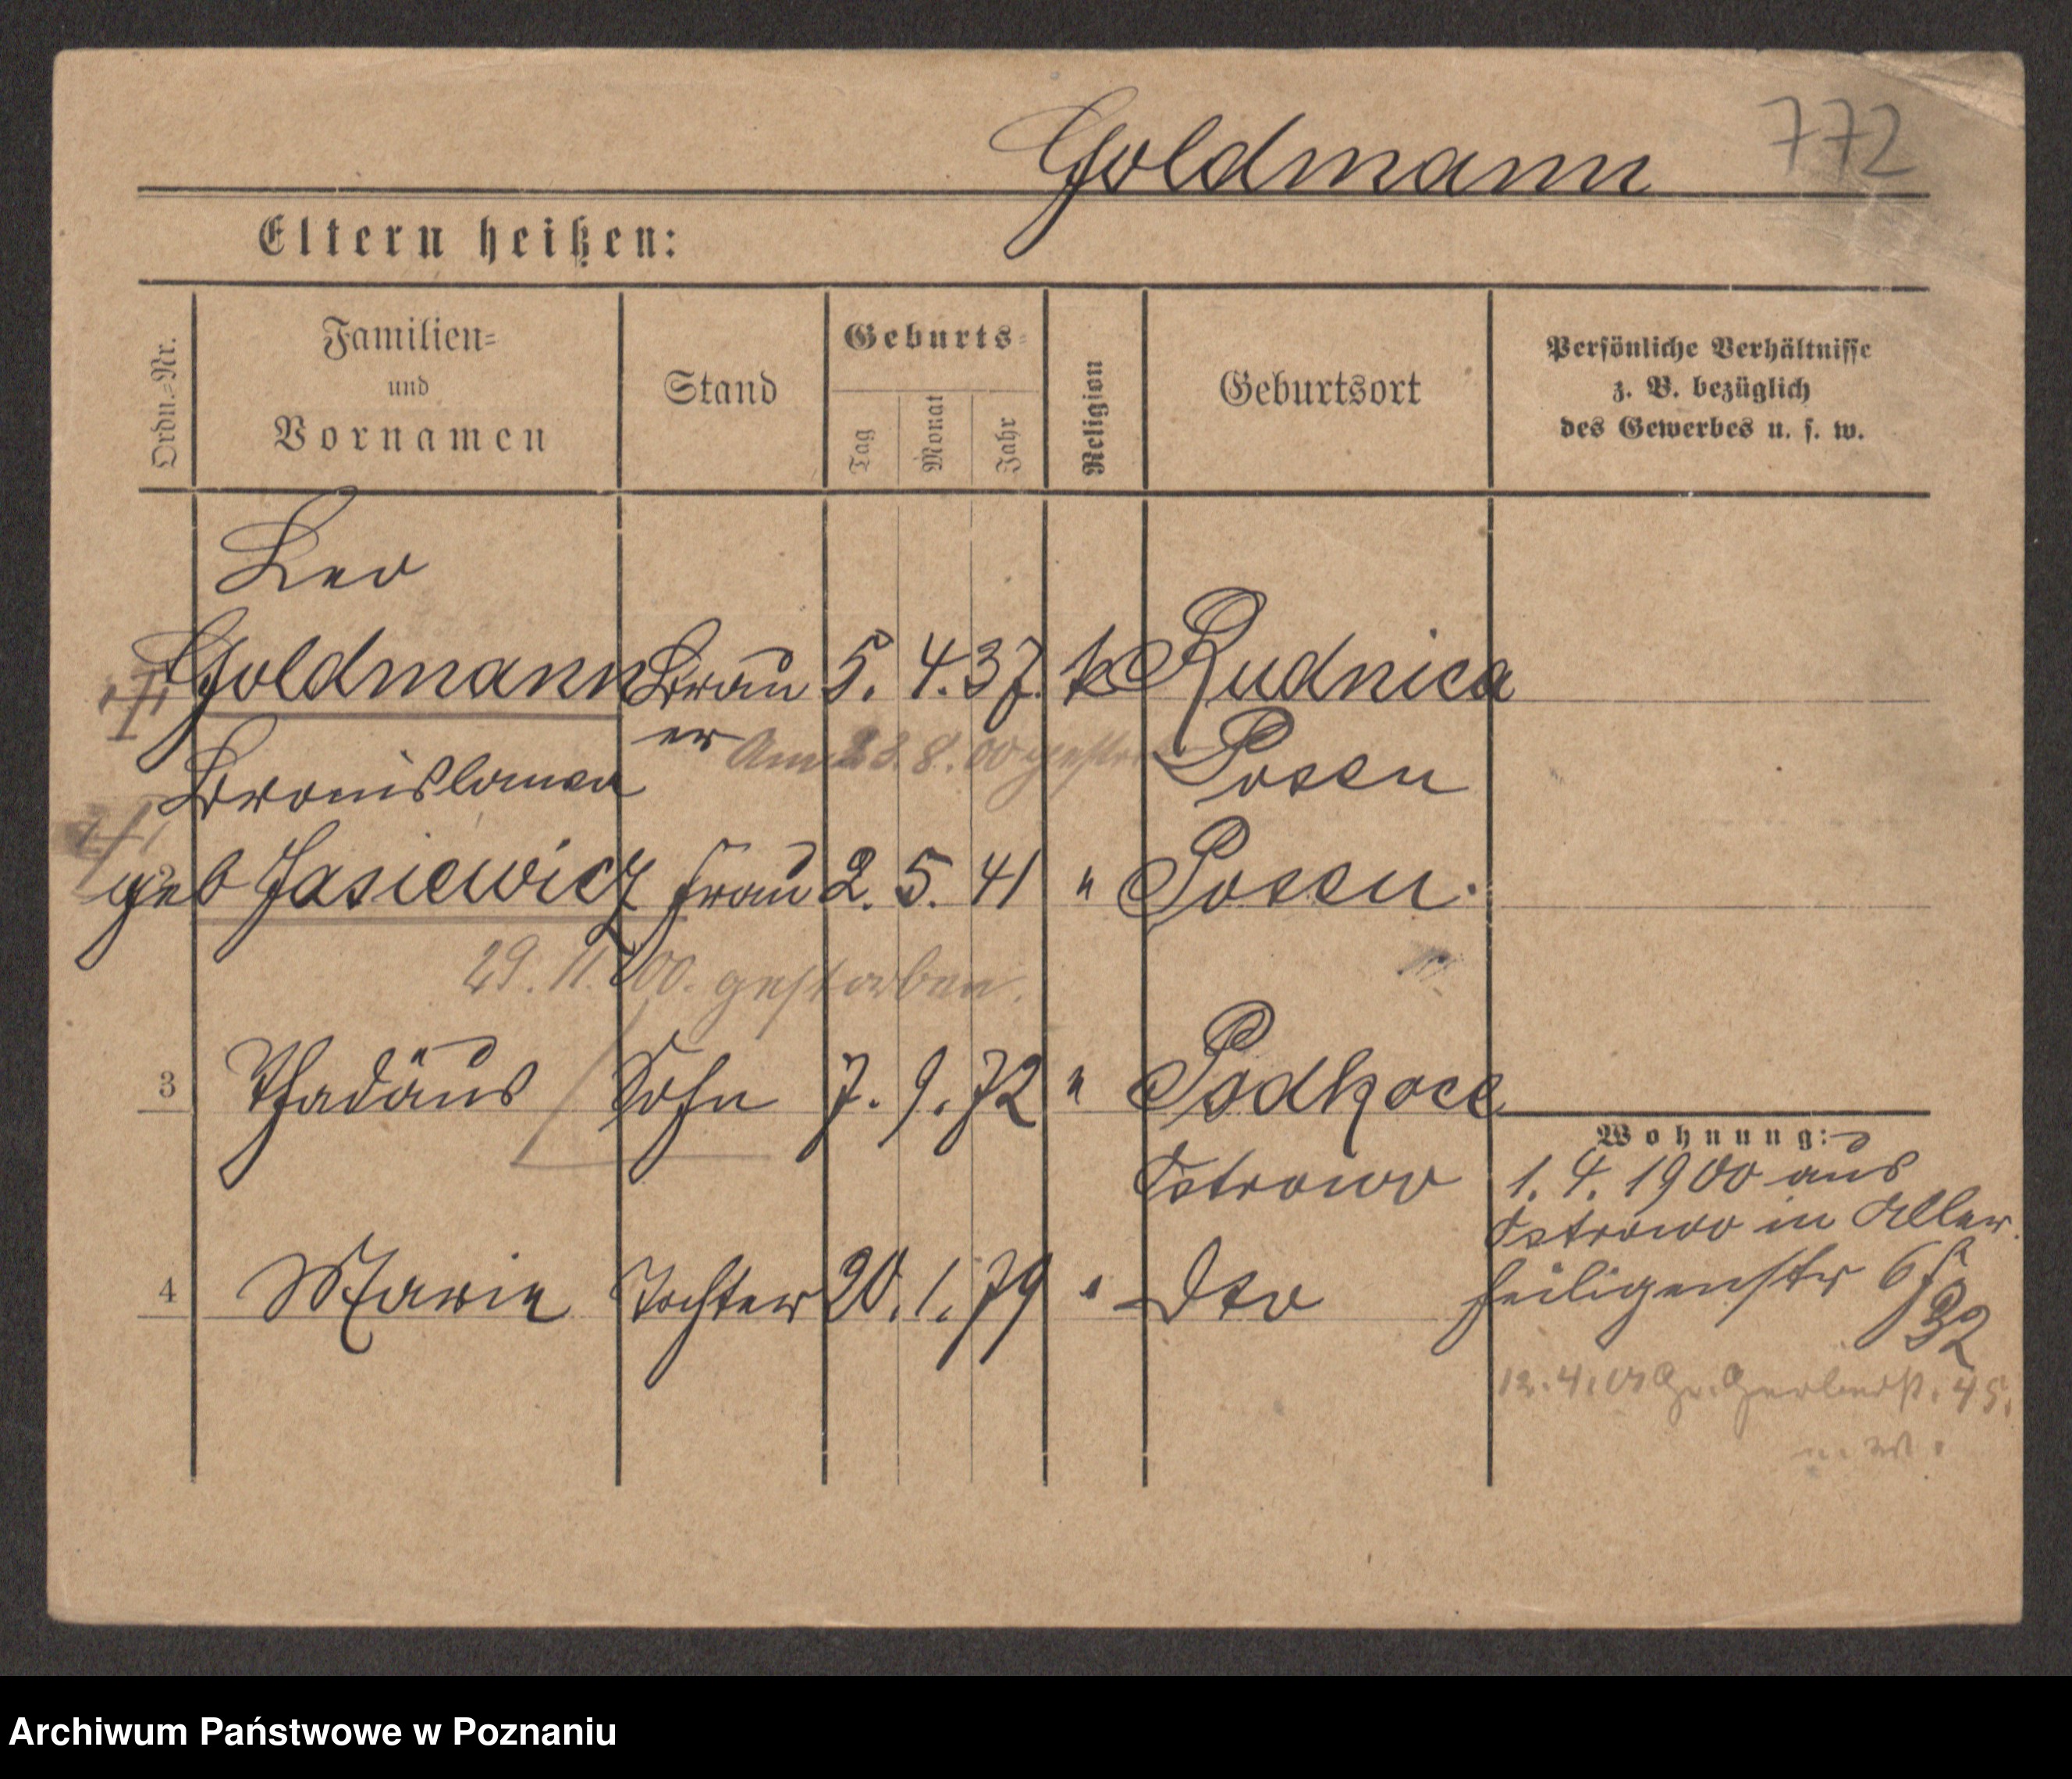 772
Goldmann
Eltern heißen:
Ordn.-Nr.
Familien-
und
Vornamen
Stand
Geburts-
Tag
Monat
Jahr
Religion
Geburtsort
Persönliche Verhältnisse
z. B. bezüglich
des Gewerbes u. s. w.
Leo
Goldmann Brau 5. 4. 37. k Rudnica
er Am 23. 8. 00 gestor Posen
Bronislawa
geb Jasiewicz Frau 2. 5. 41 " Posen.
29. 11. 00. gestorben.
3 Thadäus Sohn 7. 9. 72 " Podkoce
Ostrowo
4 Marie Tochter 20. 1. 79 " Dto
Wohnung:
1. 4. 1900 aus
Ostrowo in Aller
heiligenstr
12. 4. Gr. Gerberst. 45.
Archiwum Państwowe w Poznaniu